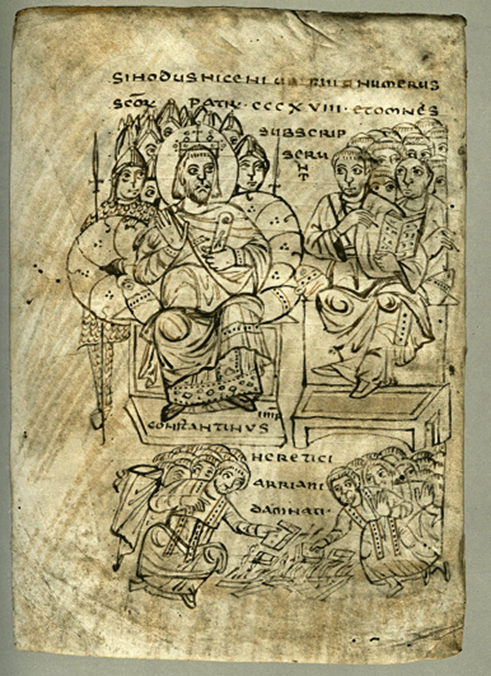 SINODUS NICENI NUMERUS
SCOR PATRU · CCCXVIII · ET OMNES
SUBSCRIP
SERU
NT
IMP
CONSTANTINUS
HERETICI
ARRIANI
DAMNATI ·